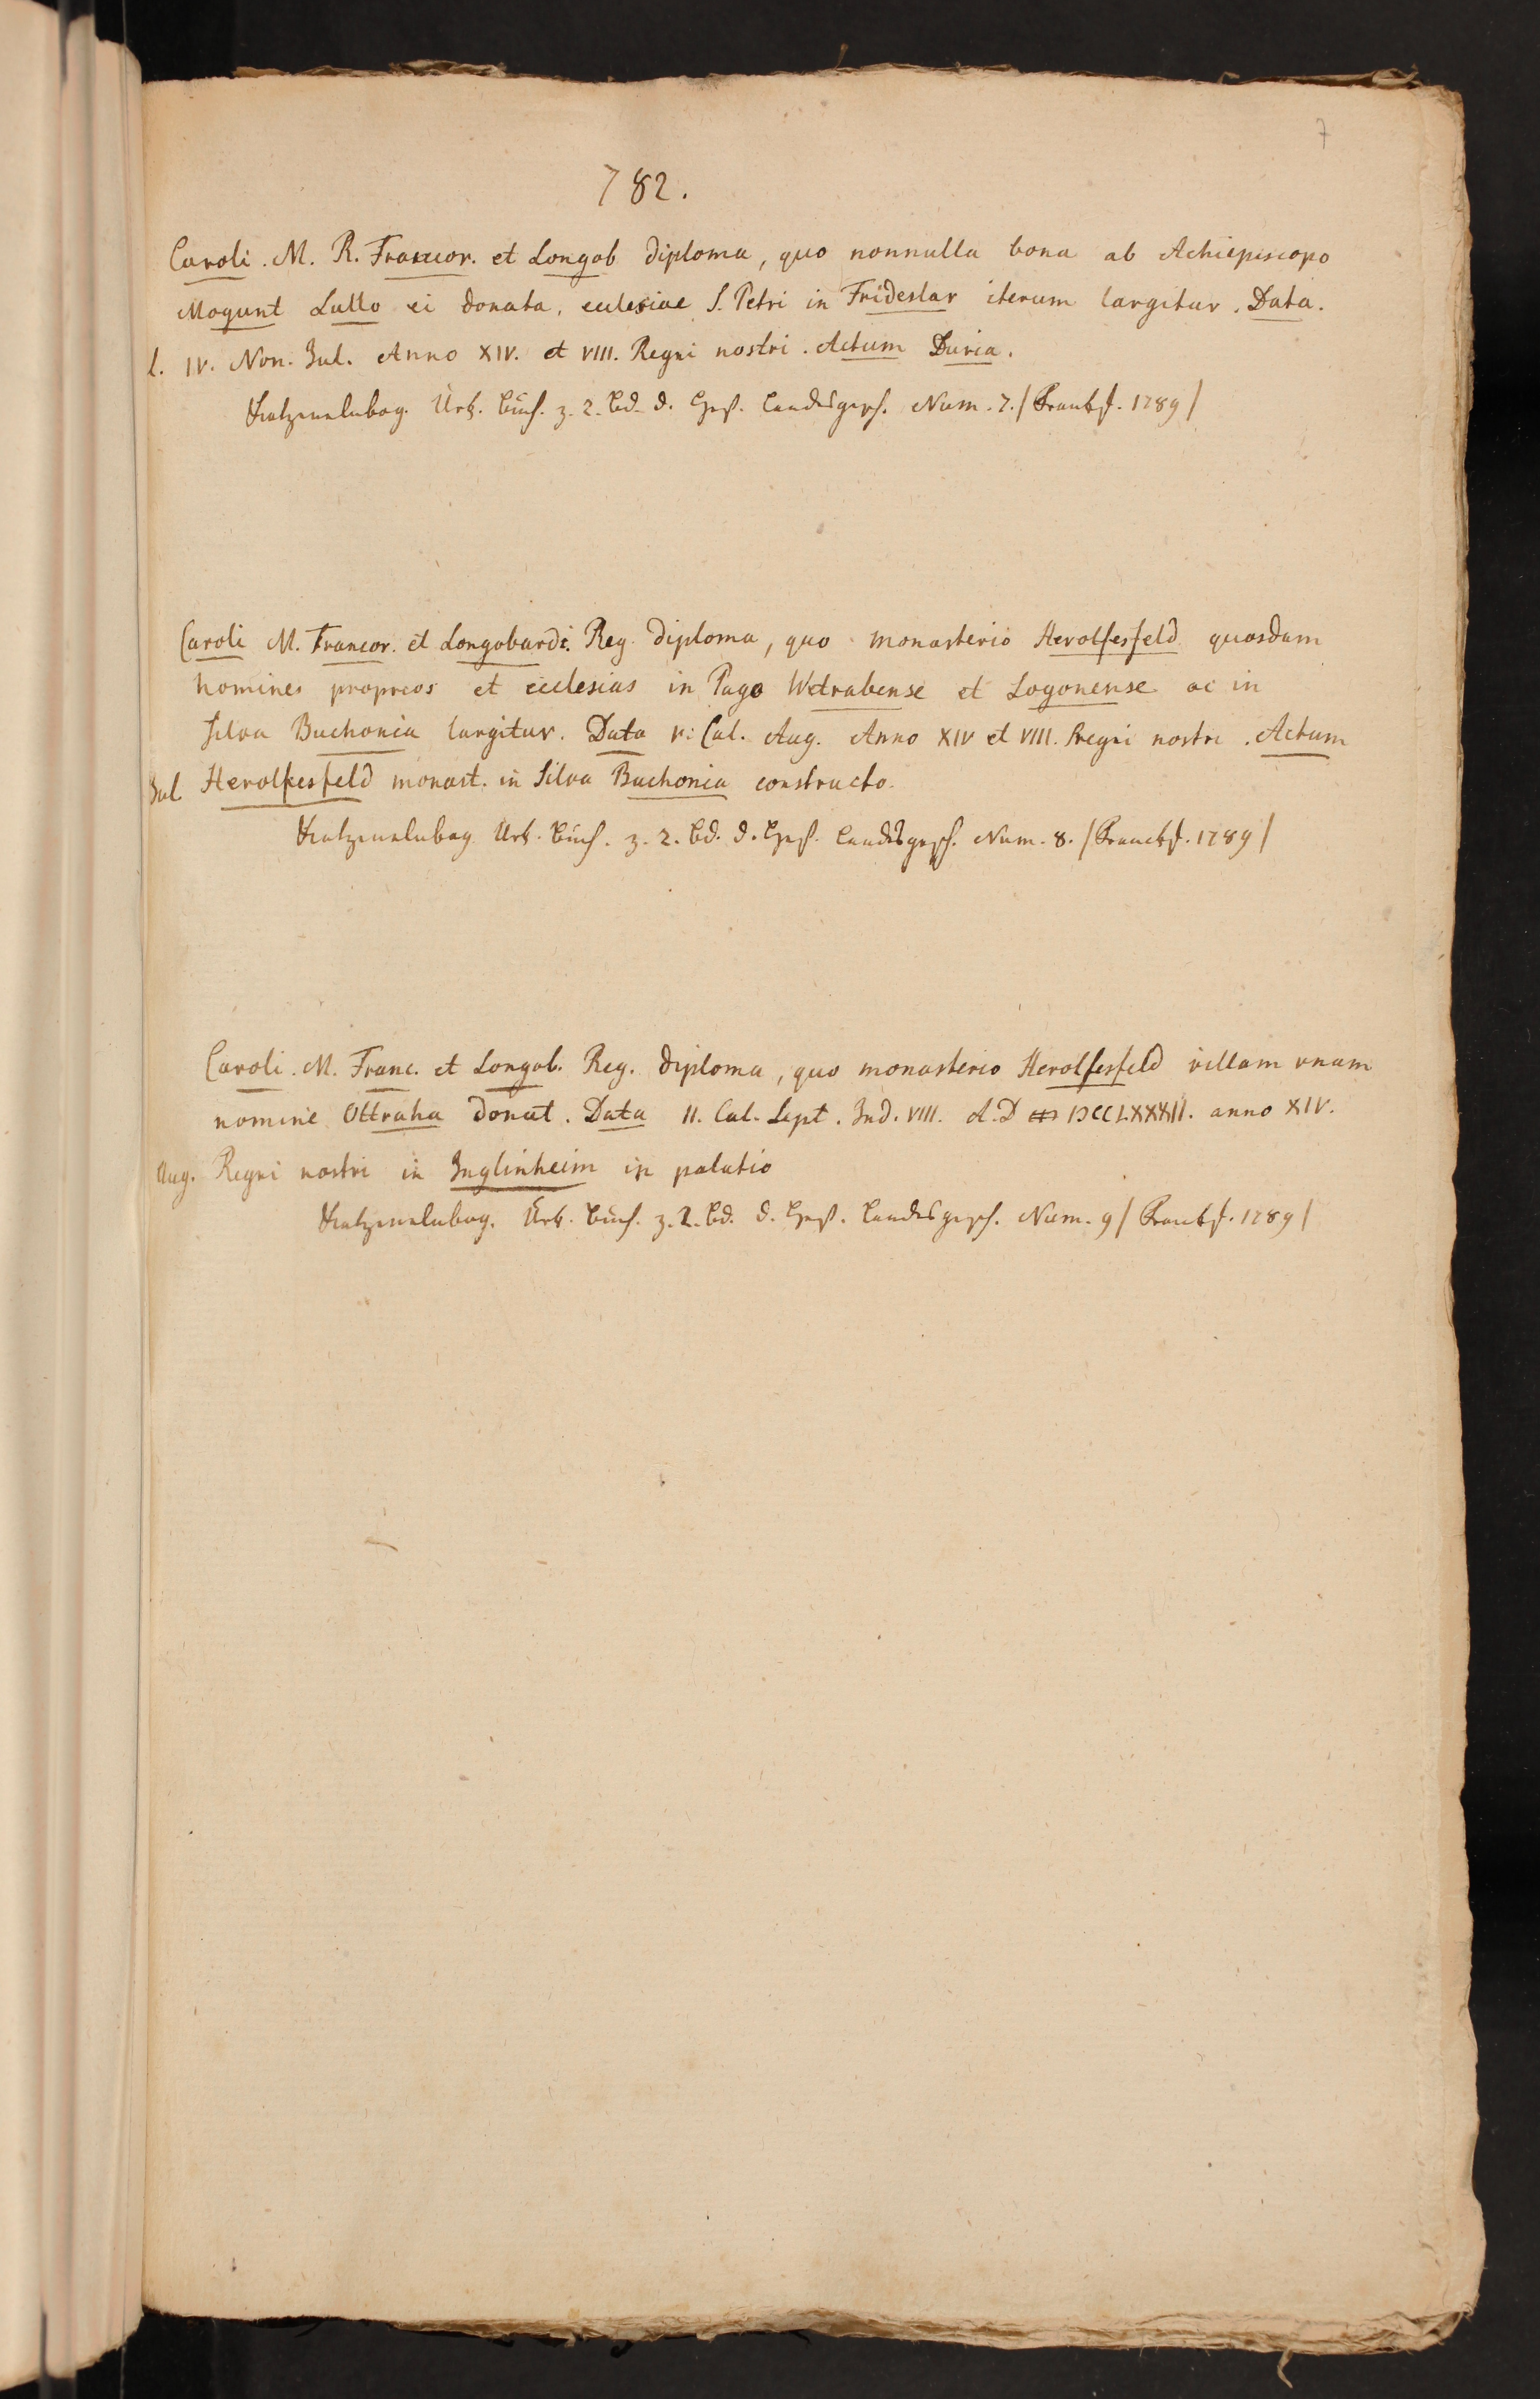 7
782.
Caroli. M. R. Francor. et Longob diploma, quo nonnulla bona ab Achiepiscopo
Mogunt Lullo ei donata, ecclesiae S. Petri in Frideslar iterum largitur. Data.
l. IV. Non. Jul. Anno XIV. et VIII. Regni nostri. Actum Duria.
Katzenelnbog. Urk. Buch. z. 2. Bd. d. Heß. Landsgesch. Num. 7. / Frankf. 1789 /
Caroli M. Francor. et Longobardi. Reg. diploma, quo monasterio Herolfesfeld quosdam
homines proprios et ecclesias in Pago Wetrabense et Logonense ac in
silva Buchonia largitur. Data V. Cal. Aug. Anno XIV et VIII. Regni nostri. Actum
Jul. Herolfesfeld monast. in Silva Buchonia constructo.
Katzenelnbog. Urk. Buch. z. 2. Bd. d. Heß. Landsgesch. Num. 8. / Franckf. 1789 /
Caroli. M. Franc. et Longob. Reg. diploma, quo monasterio Herolfesfeld villam unam
nomine Ottraha donat. Data II. Cal. Sept. Ind. VIII. A. D DCCLXXXII. anno XIV.
Aug. Regni nostri in Inglinheim in palatio
Katzenelnbog. Urk. Buch. z. 2. Bd. d. Heß. Landsgesch. Num. 9 / Frankf. 1789 /